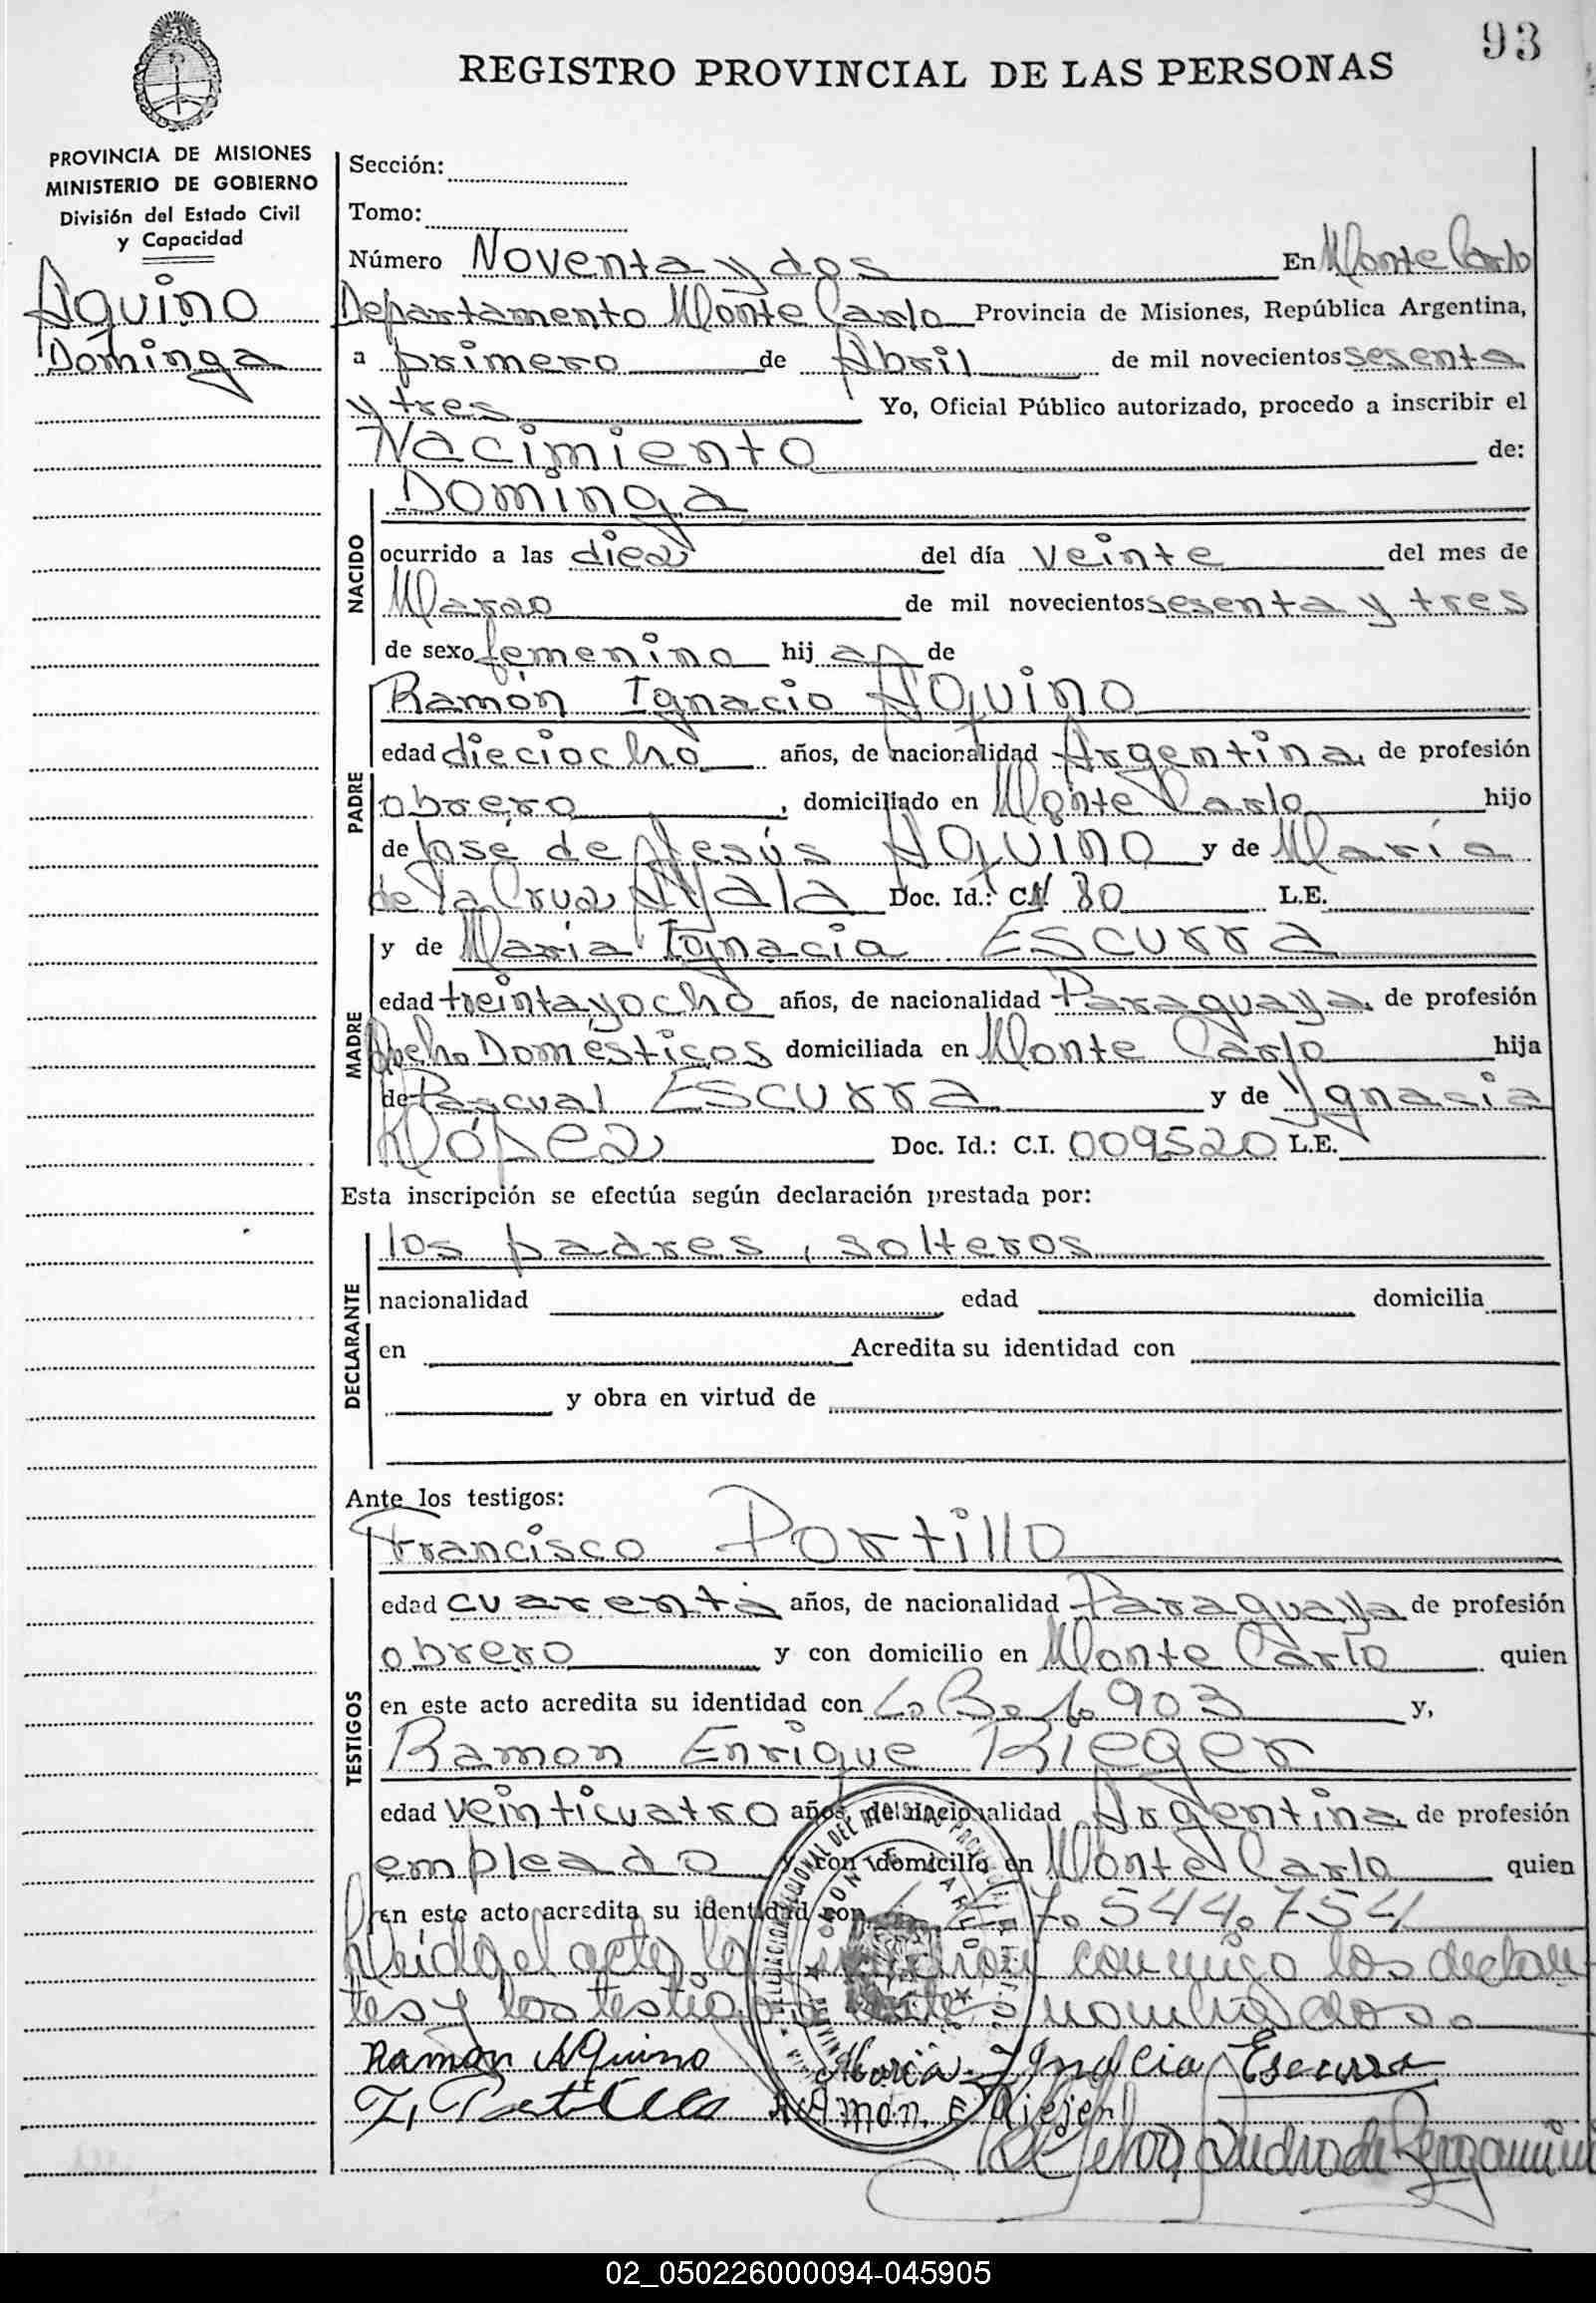 93
REGISTRO PROVINCIAL DE LAS PERSONAS
PROVINCIA DE MISIONES
MINISTERIO DE GOBIERNO
División del Estado Civil
y Capacidad
Aquino
Dominga
Sección:
Tomo:
Número Noventa y dos En Monte Carlo
Departamento Monte Carlo Provincia de Misiones, República Argentina,
a primero de Abril de mil novecientos sesenta
y tres Yo, Oficial Público autorizado, procedo a inscribir el
Nacimiento de:
Dominga
NACIDO
ocurrido a las diez del día veinte del mes de
Marzo de mil novecientos sesenta y tres
de sexo femenino hij a de
Ramón Ignacio AQUINO
PADRE
edad dieciocho años, de nacionalidad Argentina, de profesión
obrero, domiciliado en Monte Carlo hijo
de José de Jesús AQUINO y de María
de la Cruz AYALA Doc. Id.: 80 L.E.
y de María Ignacia ESCURRA
MADRE
edad treinta y ocho años, de nacionalidad Paraguaya, de profesión
Domésticos domiciliada en Monte Carlo hija
de Pascual ESCURRA y de Ygnacia
López Doc. Id.: C.I. 009520 L.E.
Esta inscripción se efectúa según declaración prestada por:
los padres, solteros
DECLARANTE
nacionalidad edad domicilia
en Acredita su identidad con
y obra en virtud de
Ante los testigos:
Francisco Portillo
TESTIGOS
edad cuarenta años, de nacionalidad Paraguaya de profesión
obrero y con domicilio en Monte Carlo quien
en este acto acredita su identidad con 903 y,
Ramon Enrique Rieger
edad veinticuatro años, de nacionalidad Argentina de profesión
empleado y con domicilio en Monte Carlo quien
en este acto acredita su identidad con 7.544.754
Leido el acta la conmigo los declaran
tes y los testigos nombrados.
Ramon Aquino María Ignacia Escurra
F. Portillo Ramón. E Riejer
de Bergamini
02_050226000094-045905